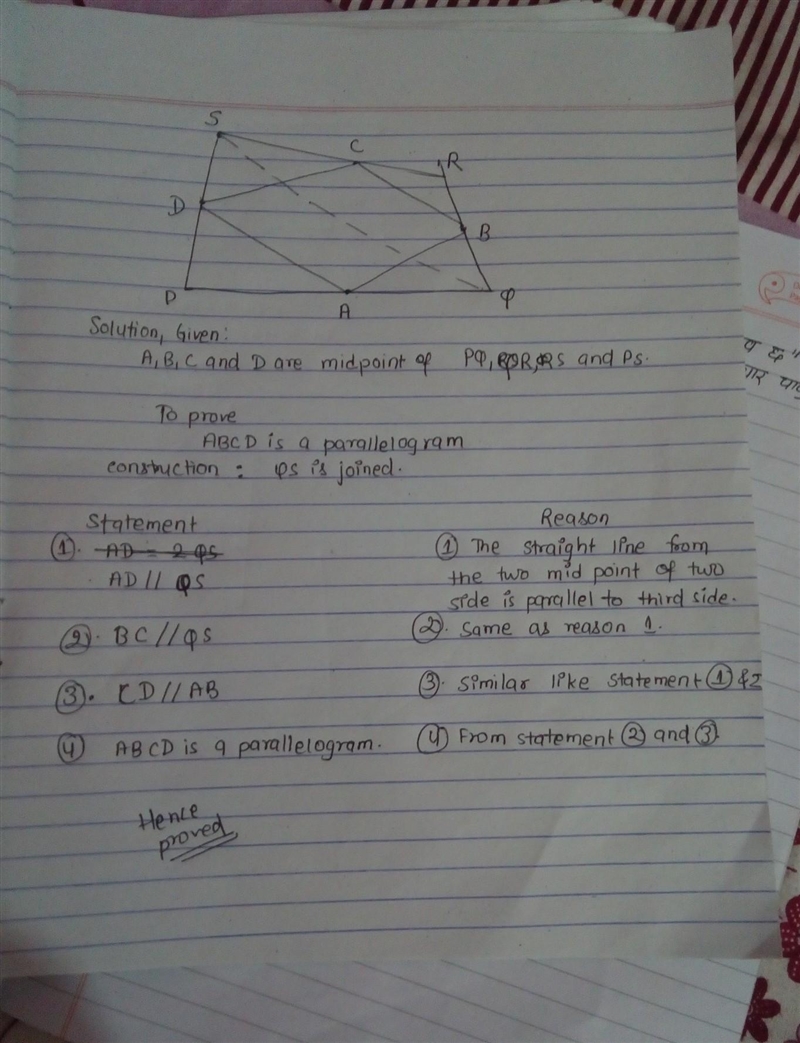 S
C
R
D
B
P
A
Q
Solution, Given:
A, B, C and D are midpoint of PQ, QR, RS and PS.
To prove
ABCD is a parallelogram
construction : QS is joined.
Statement Reason
①. AD = 2 QS ① The straight line from
AD // QS the two mid point of two
side is parallel to third side.
②. BC // QS ②. Same as reason 1.
③. CD // AB ③. Similar like statement ① & 2
④ ABCD is a parallelogram. ④ From statement ② and ③
Hence
proved